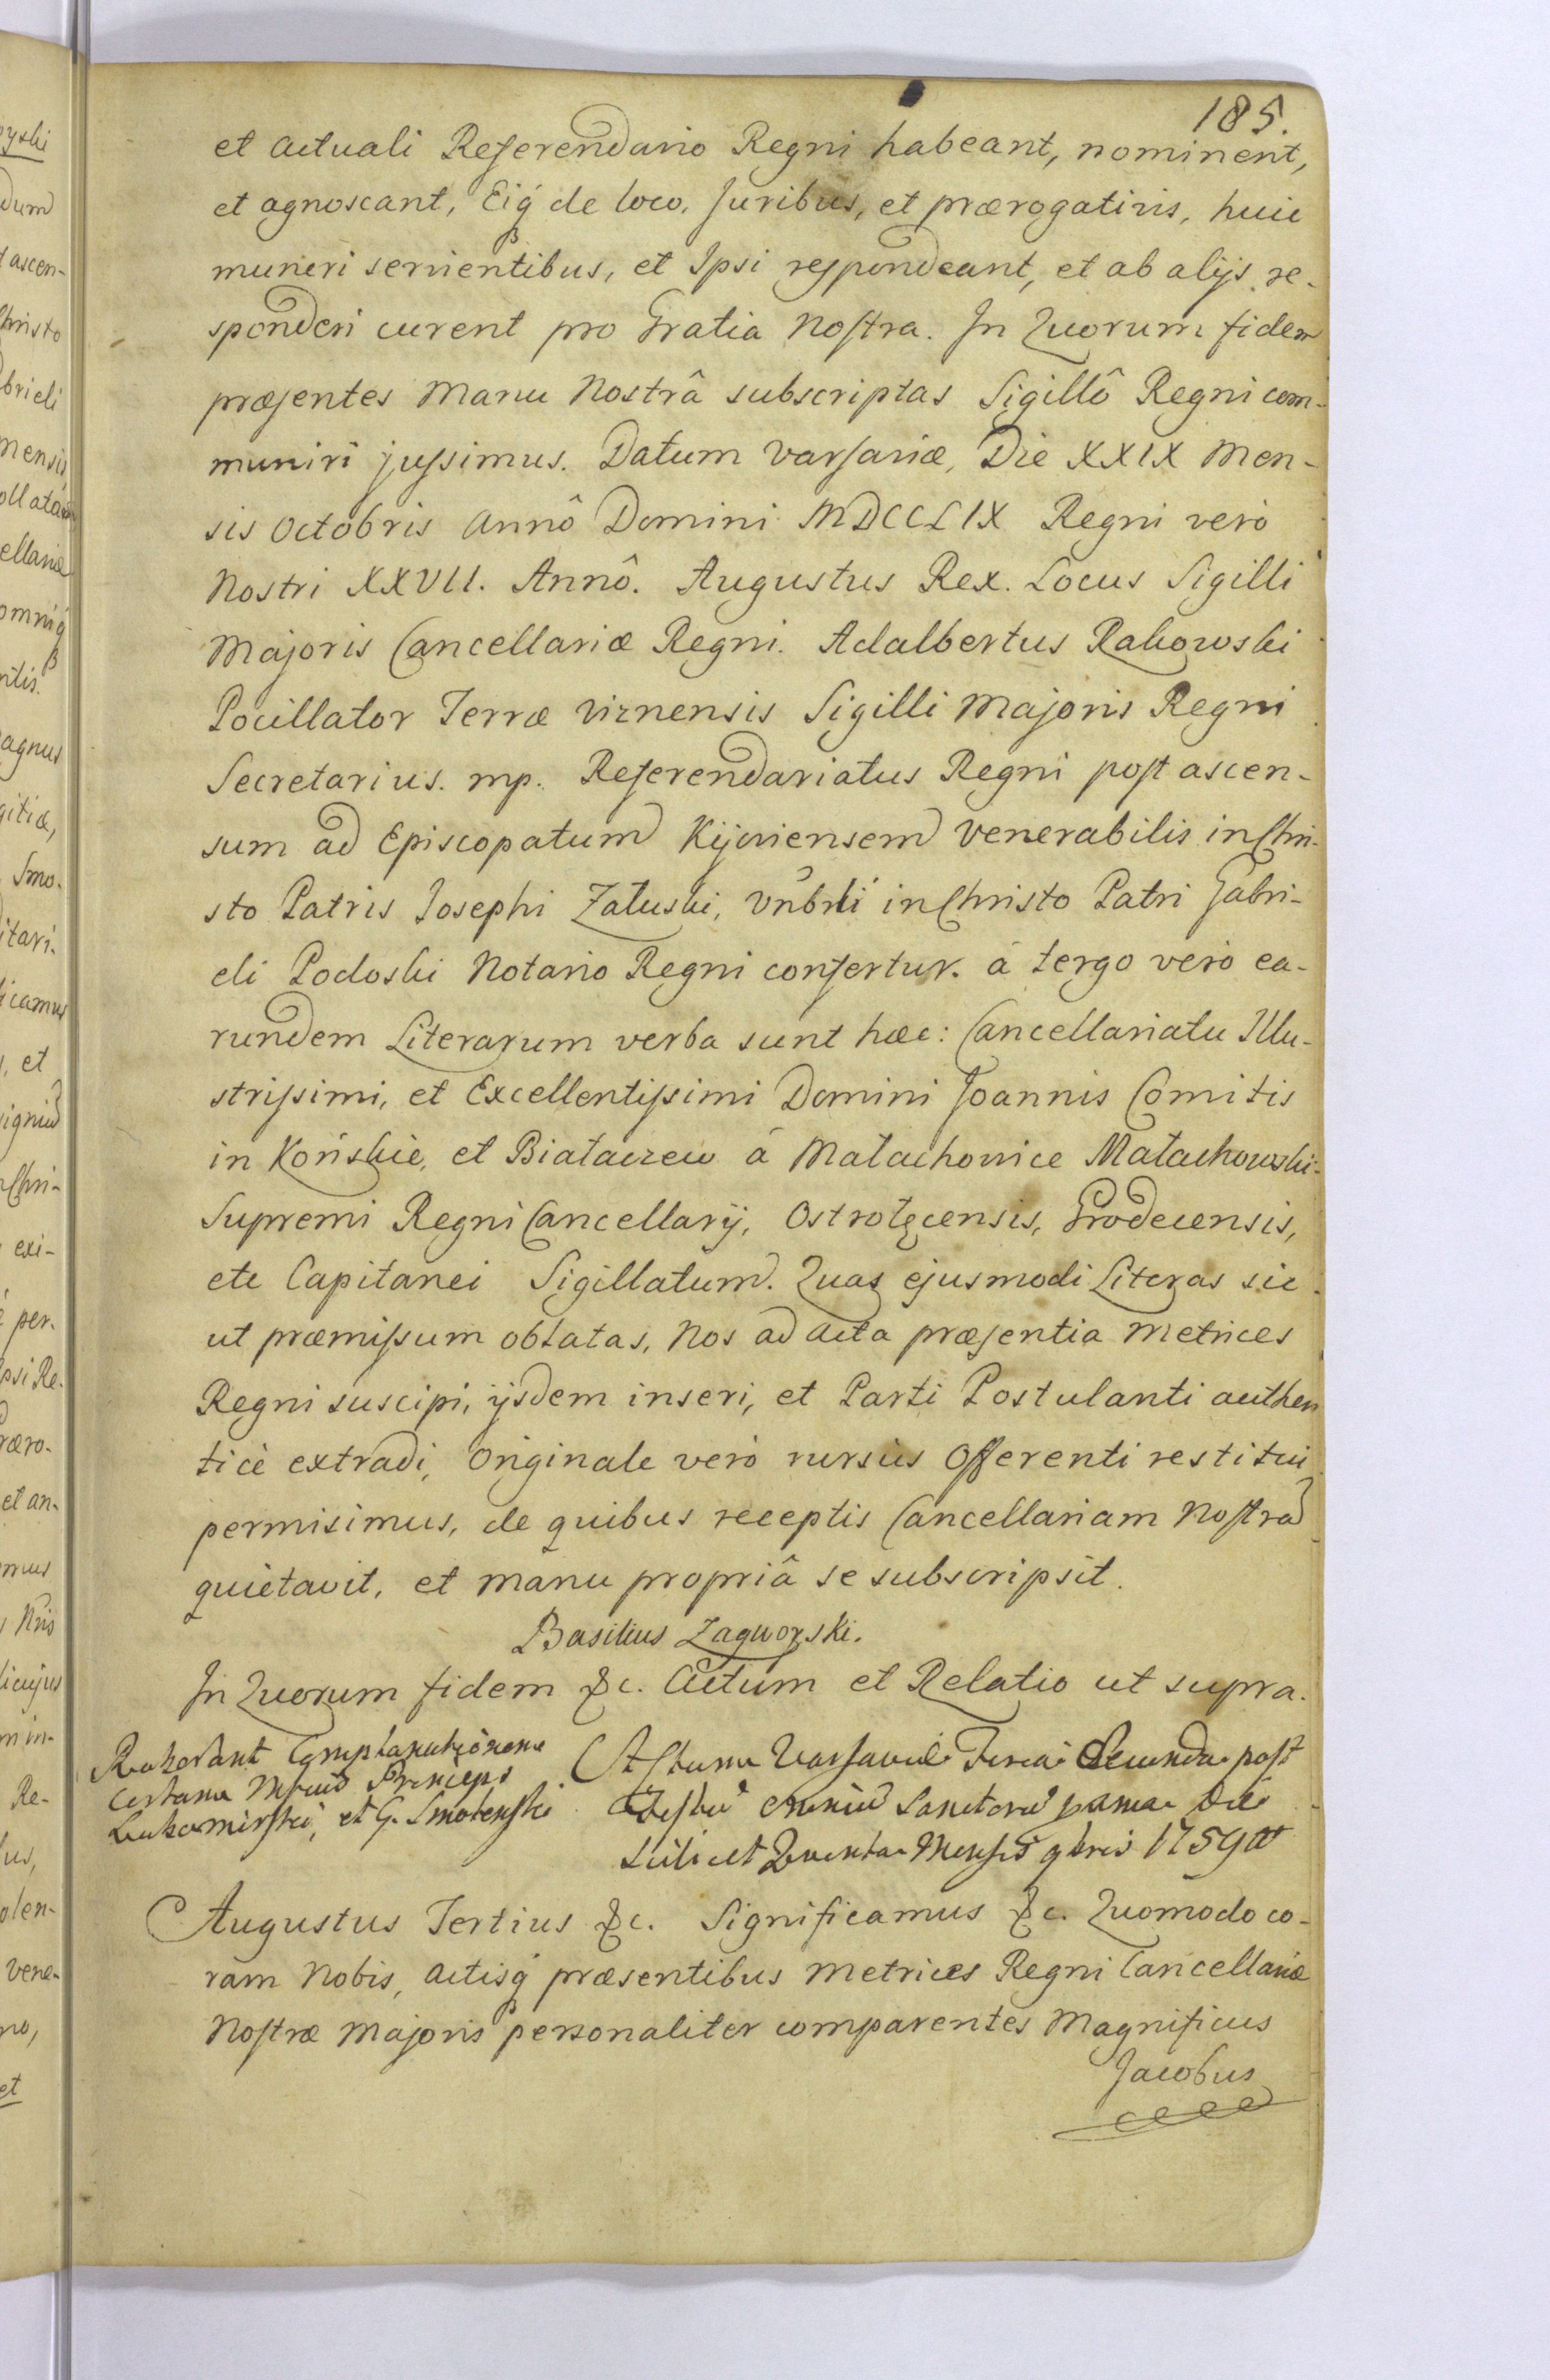 185.
et actuali Referendario Regni habeant, nominent,
et agnoscant, Eiq́ de loco, Juribus, et prærogativis, huic
muneri servientibus, et Ipsi respondeant, et ab alijs re-
sponderi curent pro Gratia Nostra. In Quorum fidem
præsentes Manu Nostrâ subscriptas Sigillô Regni com-
muniri jussimus. Datum Varsaviæ, Die XXIX Men-
sis Octobris Annô Domini MDCCLIX Regni verò
Nostri XXVII. Annô. Augustus Rex. Locus Sigilli
Majoris Cancellariæ Regni. Adalbertus Rakowski
Pocillator Terræ Viznensis Sigilli Majoris Regni
Secretarius. mp. Referendariatus Regni post ascen-
sum ad Episcopatum Kijoviensem Venerabilis in Chri-
sto Patris Josephi Załuski, Vnbrli in Christo Patri Gabri-
eli Podoski Notario Regni confertur. á tergo verò ea-
rundem Literarum verba sunt hæc: Cancellariatu Illu-
strissimi, et Excellentissimi Domini Joannis Comitis
in Końskie, et Białaczew á Małachowice Małachowski
Supremi Regni Cancellarij, Ostrołęcensis, Grodecensis,
etc Capitanei Sigillatum. Quas ejusmodi Literas sic
ut præmissum oblatas, Nos ad Acta præsentia Metrices
Regni suscipi, ijsdem inseri, et Parti Postulanti authen
ticè extradi, Originale verò rursùs Offerenti restitui
permisimus, de quibus receptis Cancellariam Nostrã
quietavit, et manu propriâ se subscripsit.
Basilius Zagworski.
In Quorum fidem &c. Actum et Relatio ut supra.
Roborant Complanationem
certam Princeps
Lubomirski, et G. Smolenski
Actum Varsaviæ Feria Secunda post
Festũ omniũ Sanctorũ prima die
scilicet Quinta Mensis 9bris 1759
Augustus Tertius &c. Significamus &c. Quomodo co-
ram Nobis, Actisq́ præsentibus Metrices Regni Cancellariæ
Nostræ Majoris personaliter comparentes Magnificus
Jacobus